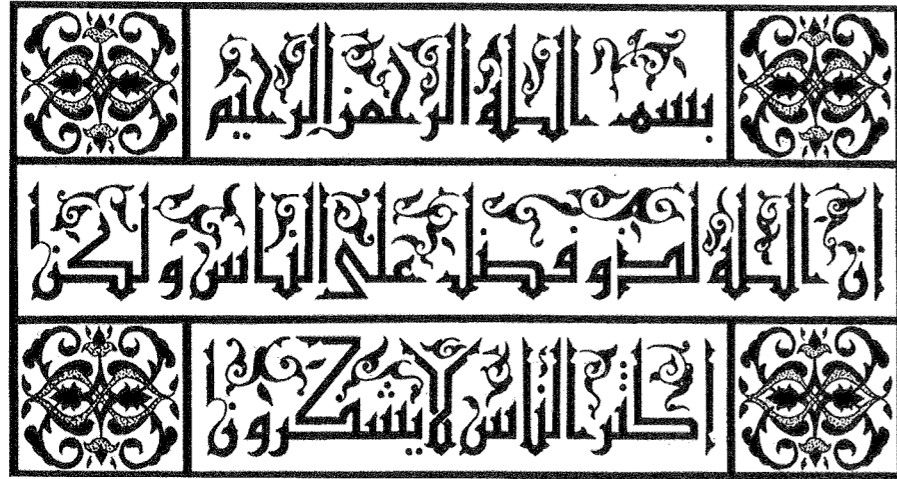 بسم الله الرحمن الرحيم
إن الله لذو فضل على الناس ولكن
أكثر الناس لا يشكرون